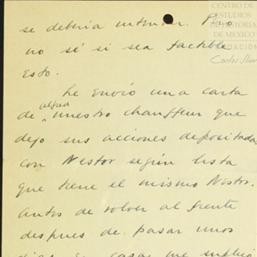 CENTRO DE
ESTUDIOS
HISTORIA
DE MEXICO
Carlos Slim
se debería intentar. Pero
no sé si sea factible
esto.
Le envío una carta
de algun nuestro chauffeur que
dejo sus acciones depositadas
con Nestor según lista
que tiene el mismo Nestor.
Antes de volver al frente
despues de pasar unos
días en casa me suplicó